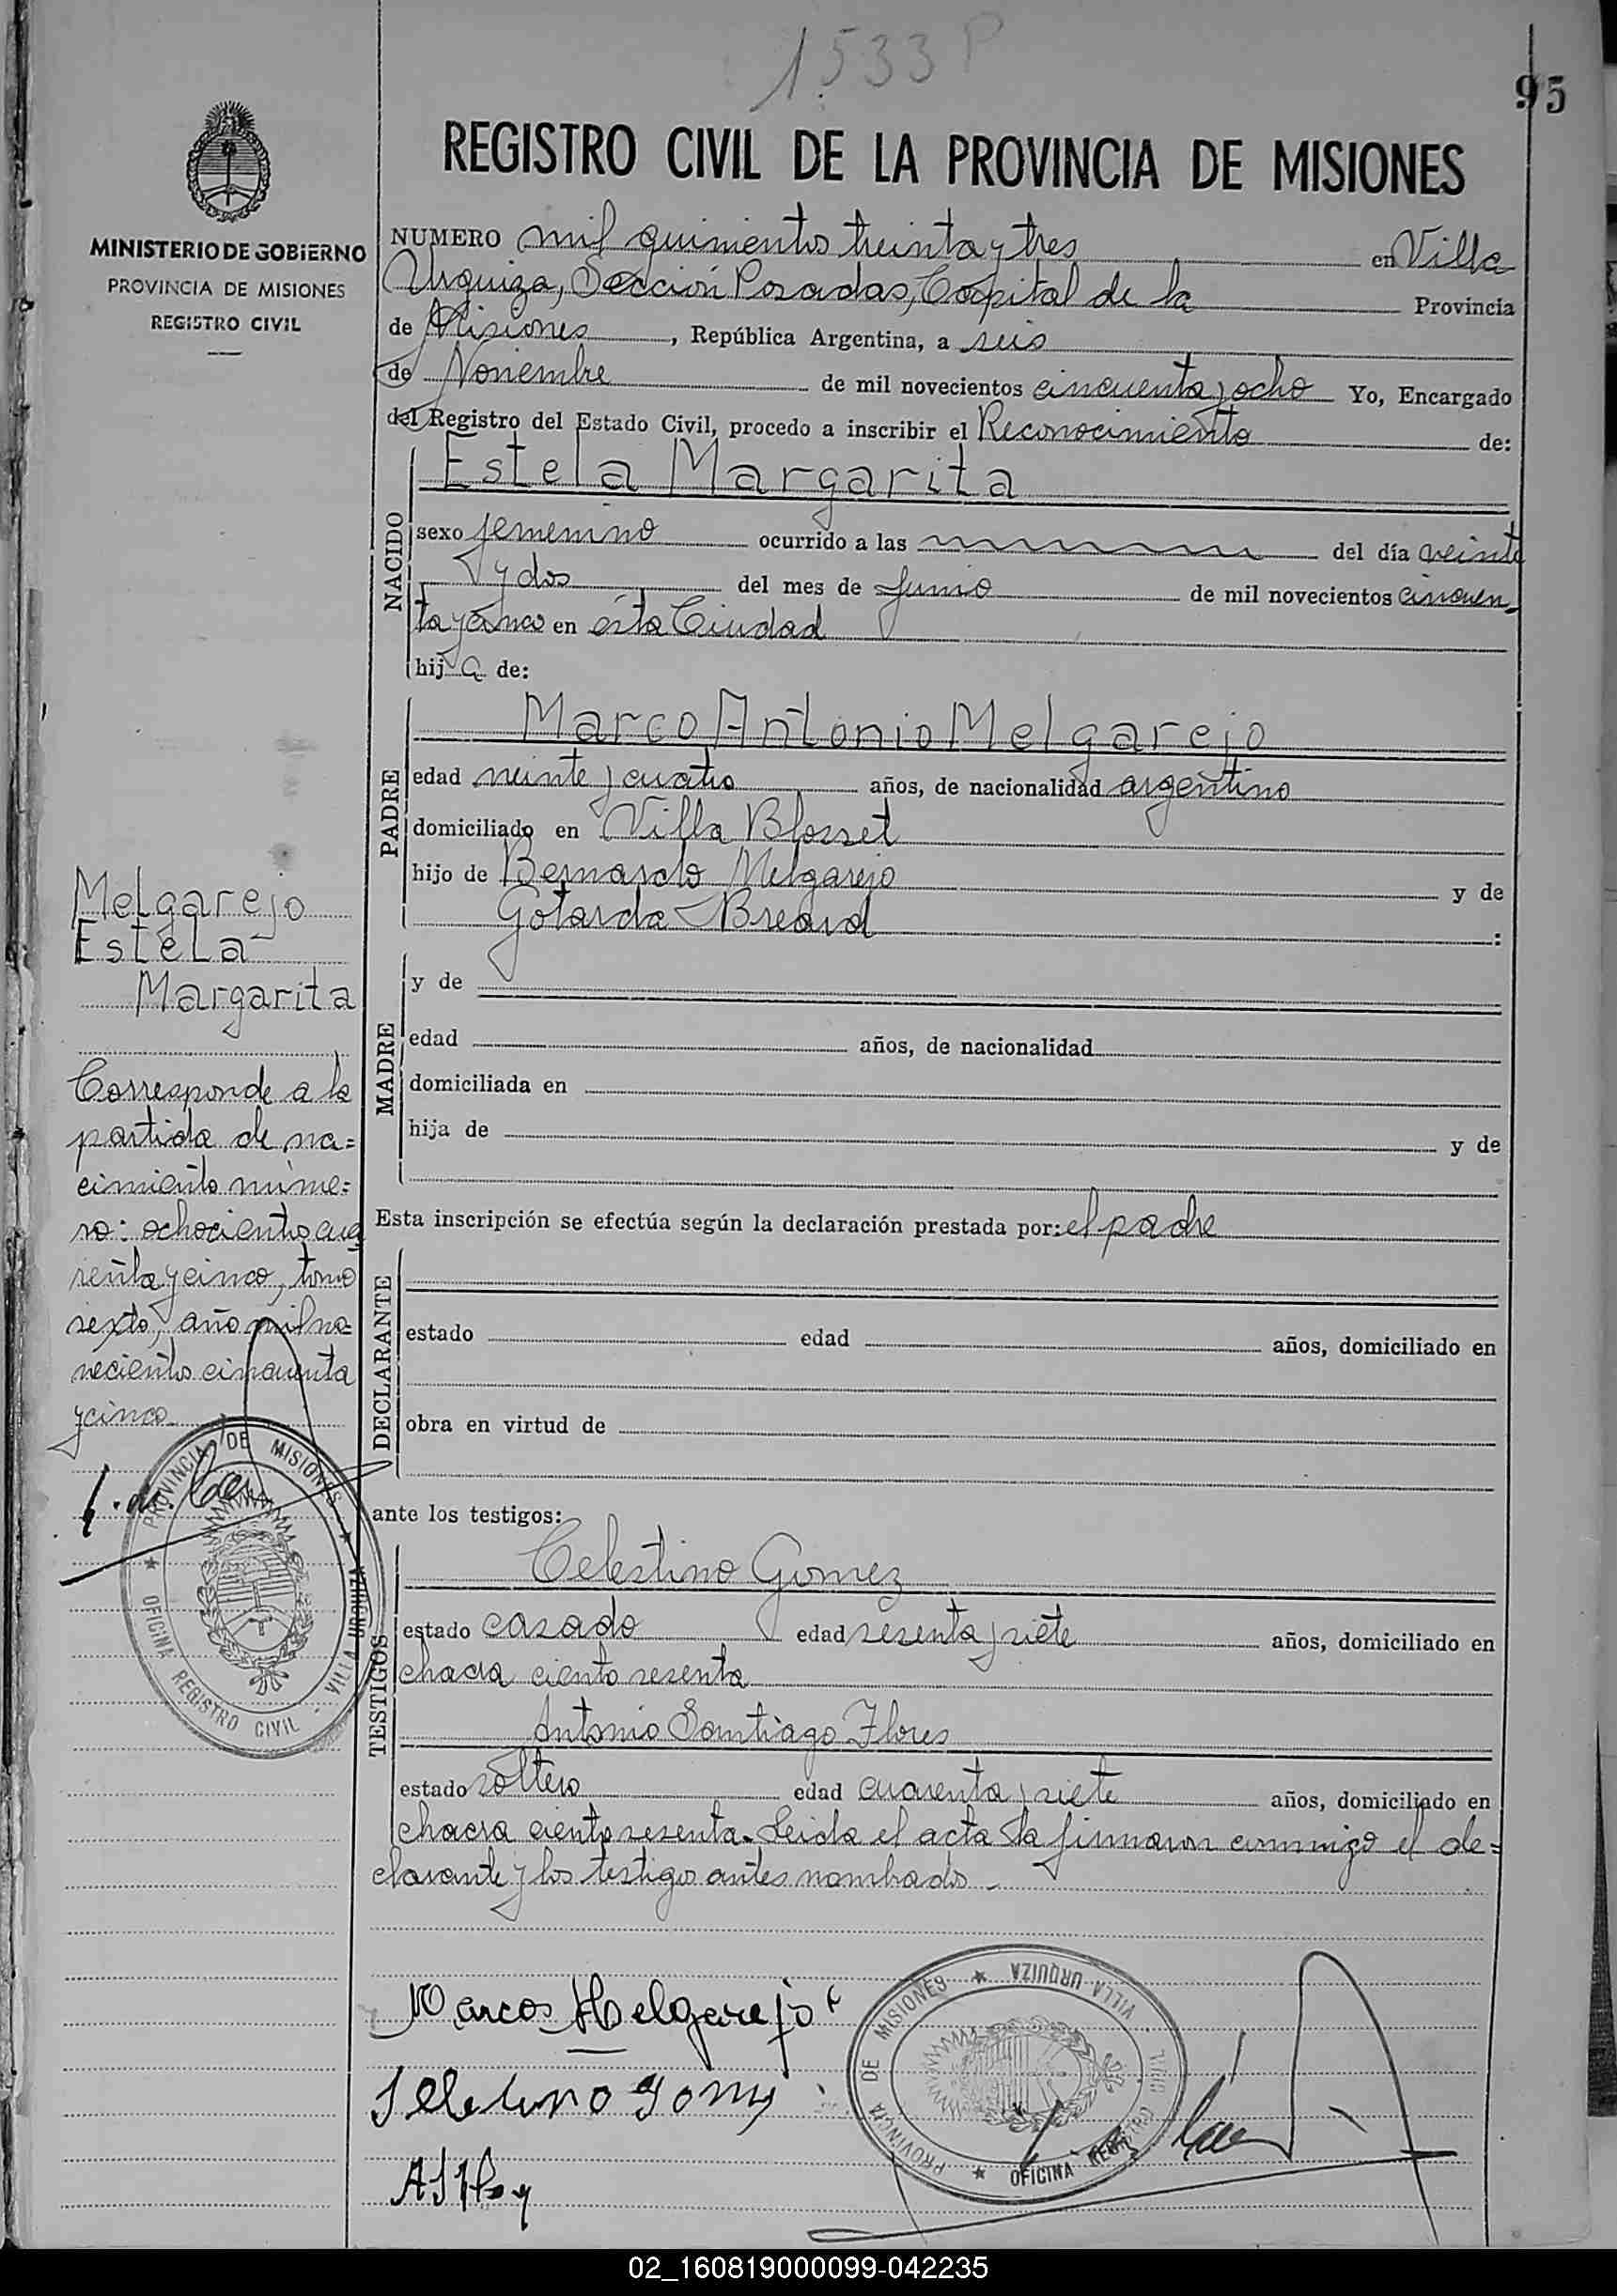 1533 P
95
REGISTRO CIVIL DE LA PROVINCIA DE MISIONES
MINISTERIO DE GOBIERNO
PROVINCIA DE MISIONES
REGISTRO CIVIL
NUMERO mil quinientos treinta y tres en Villa
Urquiza, Sección Posadas, Capital de la Provincia
de Misiones, República Argentina, a seis
de Noviembre de mil novecientos cincuenta y ocho Yo, Encargado
del Registro del Estado Civil, procedo a inscribir el Reconocimiento de:
NACIDO
Estela Margarita
sexo femenino ocurrido a las del día veinte
y dos del mes de Junio de mil novecientos cincuen-
ta y cinco en ésta Ciudad
hija de:
PADRE
Marco Antonio Melgarejo
edad veinte y cuatro años, de nacionalidad argentino
domiciliado en Villa Blosset
hijo de Bernardo Melgarejo y de
Gotarda Breard :
MADRE
y de
edad años, de nacionalidad
domiciliada en
hija de y de
Esta inscripción se efectúa según la declaración prestada por: el padre
DECLARANTE
estado edad años, domiciliado en
obra en virtud de
ante los testigos:
TESTIGOS
Celestino Gomez
estado casado edad sesenta y siete años, domiciliado en
chacra ciento sesenta
Antonio Santiago Flores
estado soltero edad cuarenta y siete años, domiciliado en
chacra ciento sesenta. Leida el acta la firmaron conmigo el de=
clarante y los testigos antes nombrados -
Melgarejo
Estela
Margarita
Corresponde a la
partida de na=
cimiento núme=
ro: ochocientos cua
renta y cinco, tomo
sexto, año mil no-
vecientos cincuenta
y cinco
PROVINCIA DE MISIONES
OFICINA REGISTRO CIVIL - VILLA URQUIZA
Marcos Melgarejo
PROVINCIA DE MISIONES
VILLA URQUIZA
OFICINA REG
CIVIL
02_160819000099-042235